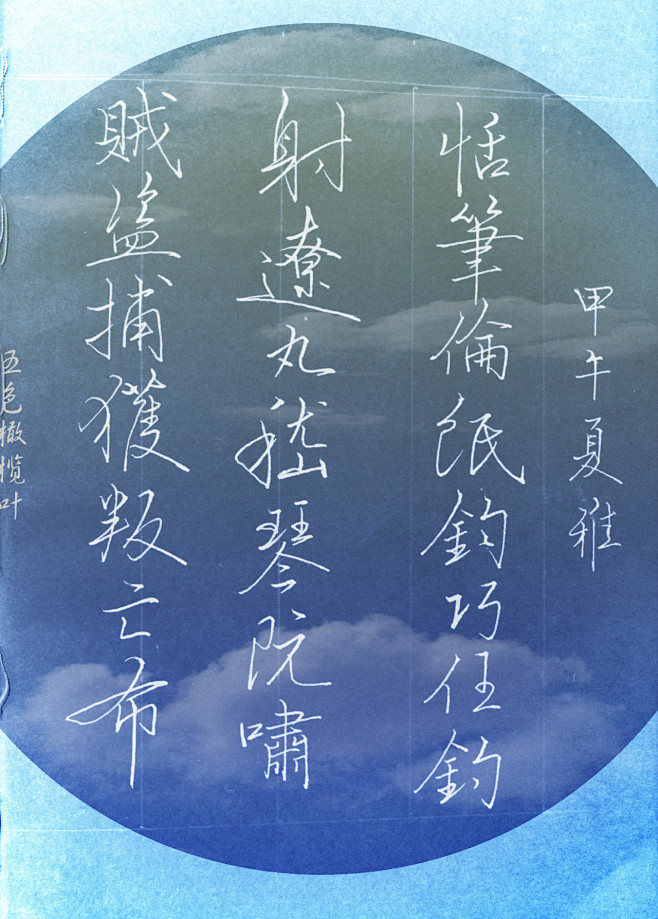 賊盜捕獲叛亡布
射遼丸嵇琴阮嘯
恬筆倫紙鈞巧任釣
甲午夏雅
五色橄榄叶